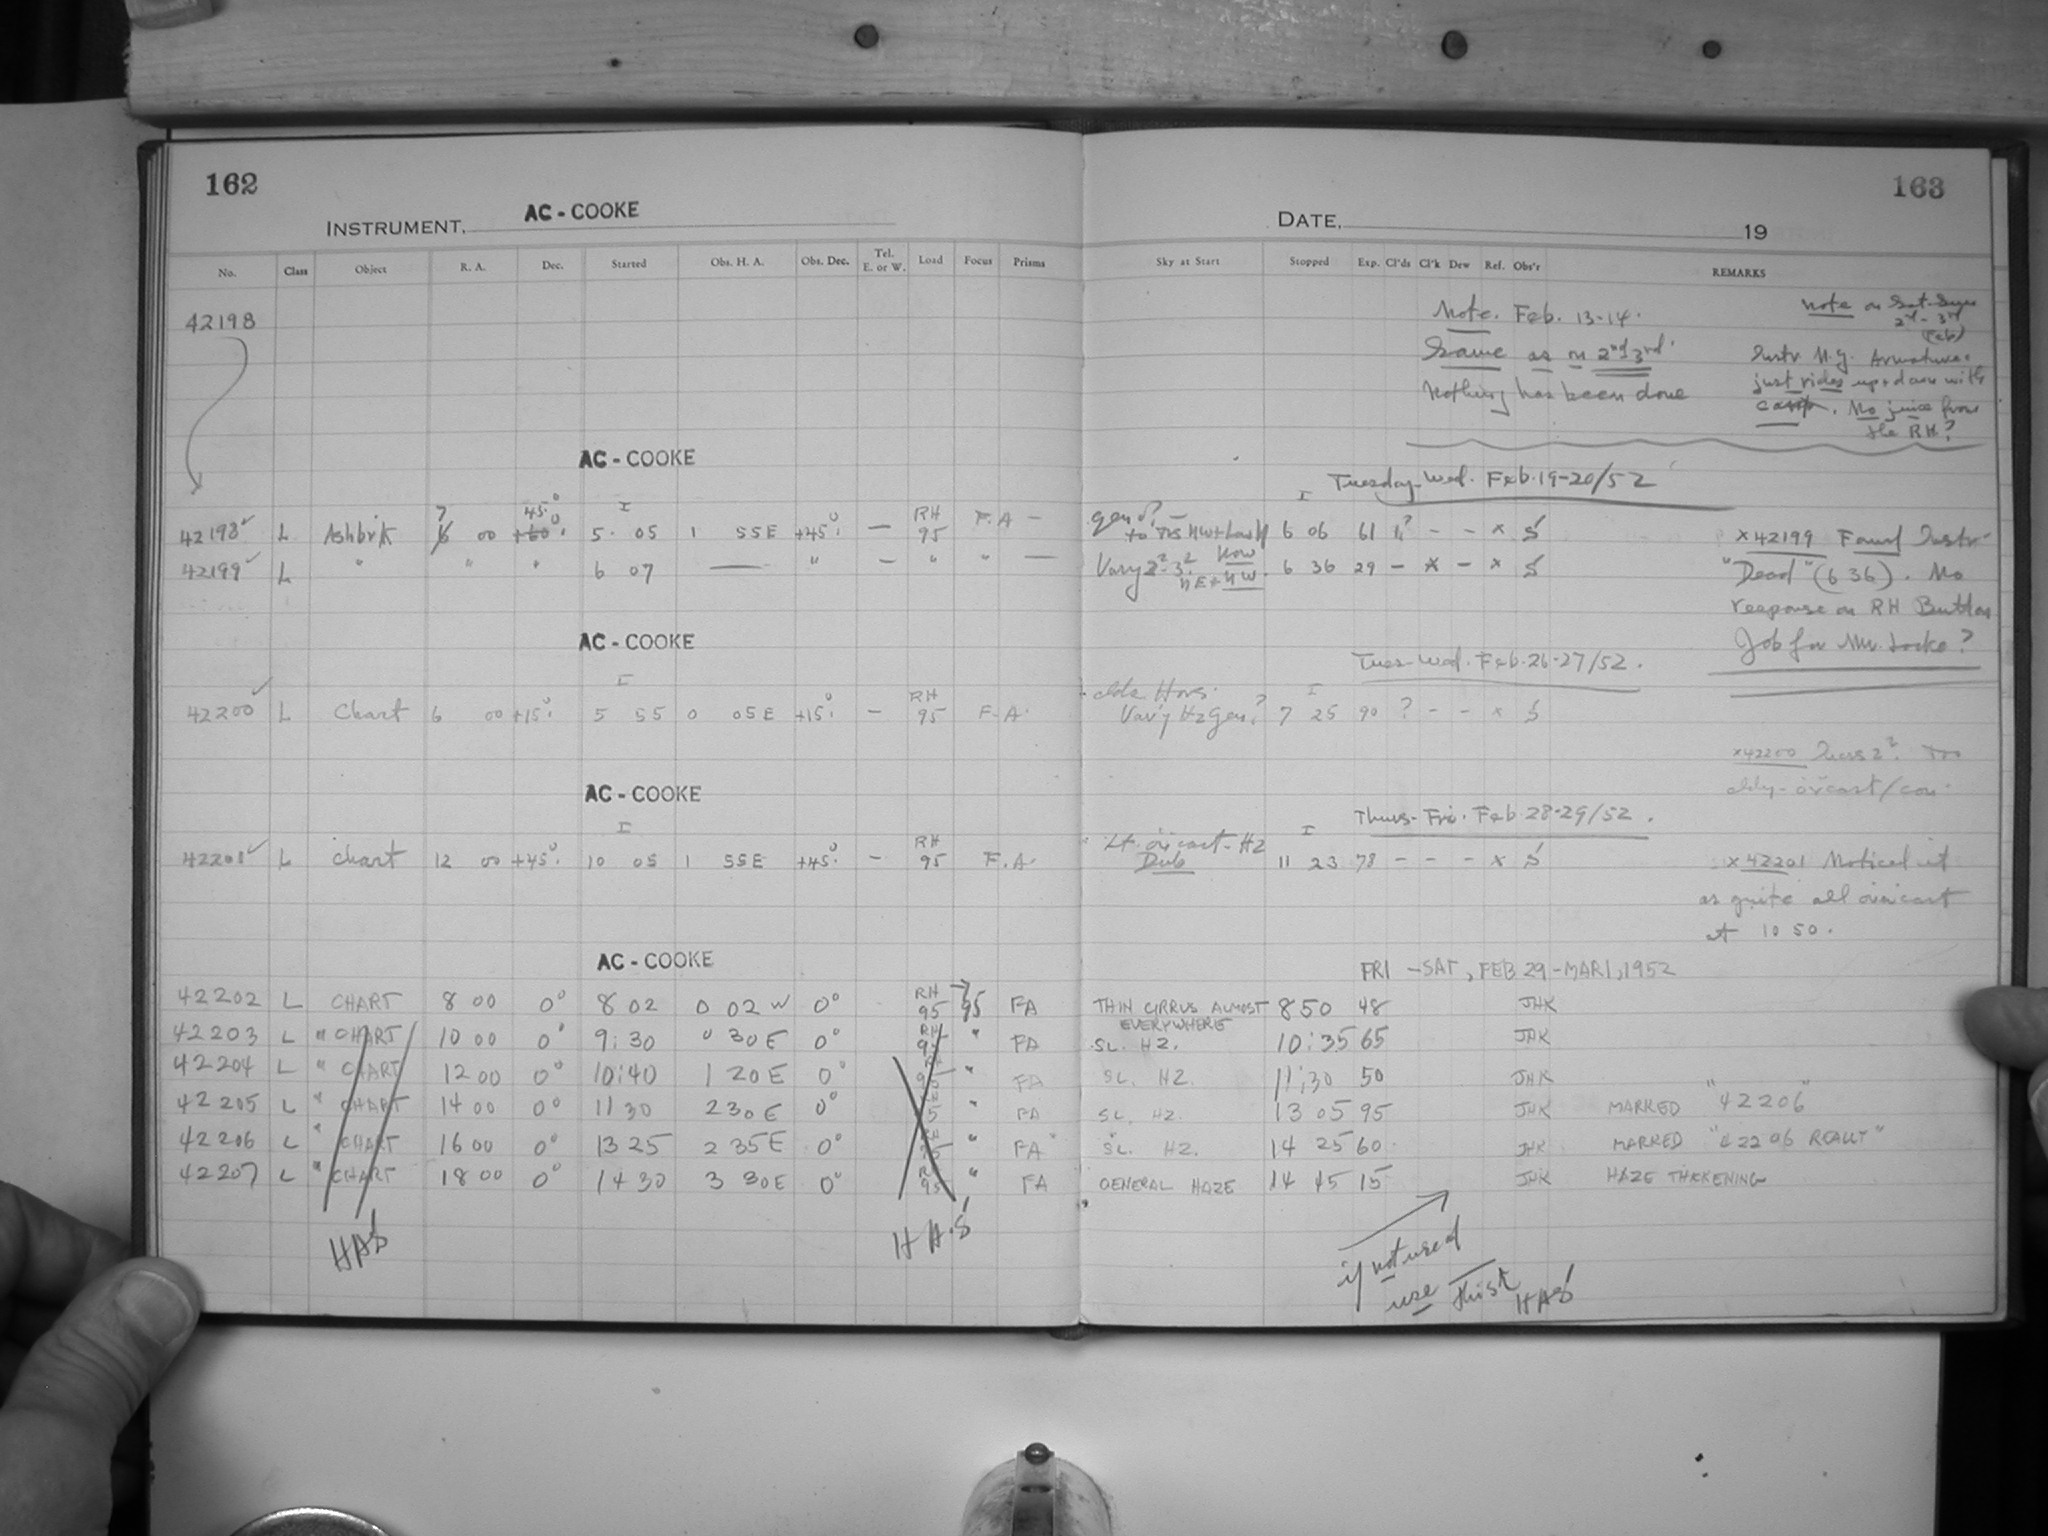 162
INSTRUMENT, AC - COOKE
No. Class Object R. A. Dec. Started Obs. H. A. Obs. Dec. Tel. E. or W. Load Focus Prisms
42198
AC - COOKE
45°
7 I RH
42198 ✓ L 6 00 +60° 5 05 1 55E +45° — 95 F.A —
42199 ✓ L " " " 6 07 — " — " " —
AC - COOKE
I RH
42200 ✓ L Chart 6 00 +15° 5 55 0 05E +15° — 95 F.A.
AC - COOKE
I RH
42201 ✓ L Chart 12 00 +45° 10 05 1 55E +45° — 95 F.A.
AC - COOKE
42202 L CHART 8 00 0° 8 02 0 02 W 0° RH 95 95 FA
42203 L " CHART 10 00 0° 9:30 0 30E 0° RH 95 " FA
42204 L " CHART 12 00 0° 10:40 1 20E 0° 95 " FA
42205 L " CHART 14 00 0° 11 30 2 30E 0° 95 " FA
42206 L " CHART 16 00 0° 13 25 2 35E 0° " FA
42207 L " CHART 18 00 0° 14 30 3 30E 0° RH 95 " FA
HAS HAS
163
DATE, 19
Sky at Start Stopped Exp. Cl'ds Cl'k Dew Ref. Obs'r REMARKS
Note. Feb. 13-14.
Same as on 2nd 3rd.
Nothing has been done
Note on Sat-Sun
2nd - 3rd
(Feb)
Instr. H.g. Armature.
just rides up + down with
No juice from
the RH?
Tuesday-Wed. Feb. 19-20/52
I
6 06 61 – – x S
Vary 2²-3²? Now NE + NW. 6 36 29 – x – x S
x42199 Found Instr.
"Dead" (6 36). No
response on RH Button
Job for Mr. Locke?
Tues-Wed. Feb. 26-27/52.
I
Vary Hz Gen.? 7 25 90 ? – – x S
x42200 Less 2²? Too
cldy-overcast/con.
Thurs-Fri. Feb 28-29/52.
I
Lt. overcast-Hz
Dub 11 23 78 – – – x S
x42201 Noticed it
as quite all overcast
at 10 50.
FRI – SAT, FEB 29 – MAR 1, 1952
THIN CIRRUS ALMOST EVERYWHERE 8 50 48 JHK
SL. HZ. 10:35 65 JHK
SL. HZ. 11:30 50 JHK
SL. HZ. 13 05 95 JHK MARKED "42206"
SL. HZ. 14 25 60 JHK MARKED "42206 REALLY"
GENERAL HAZE 14 45 15 JHK HAZE THICKENING
if not used
use this HAS